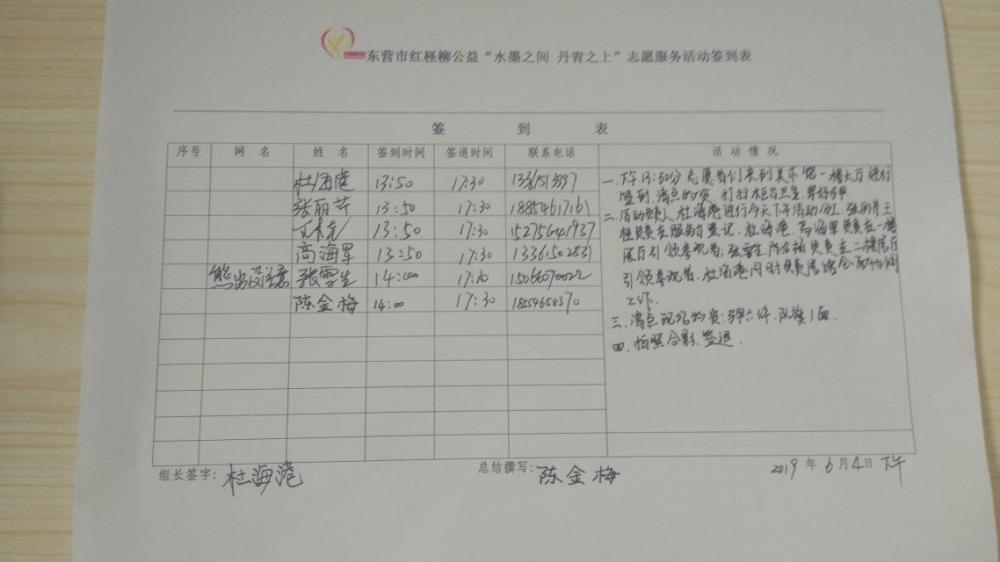 东营市红柽柳公益“水墨之间 丹青之上”志愿服务活动签到表
签 到 表
序号 网 名 姓 名 签到时间 签退时间 联系电话 活 动 情 况
杜海港 13:50 17:30
张丽芹 13:50 17:30 18854617161
13:50 17:30 15275641937
高海军 13:50 17:30 13361502831
熊出没注意 张雪生 14:00 17:30
陈金梅 14:00 17:30
一、下午13:50分志愿者们来到美术馆一楼大厅进行
签到、清点物资、打扫柜台卫生、穿好马甲
二、活动负责人杜海港进行今天下午活动分工,张丽芹
负责在服务台登记,杜海港、高海军负责在一楼
展厅引领参观者,张雪生、陈金梅负责在二楼展厅
引领参观者,杜海港同时负责展馆全面协调
工作。
三、清点现场物资:马甲六件,队旗1面
四、拍照合影、签退。
组长签字:杜海港 总结撰写:陈金梅 2019年6月4日下午